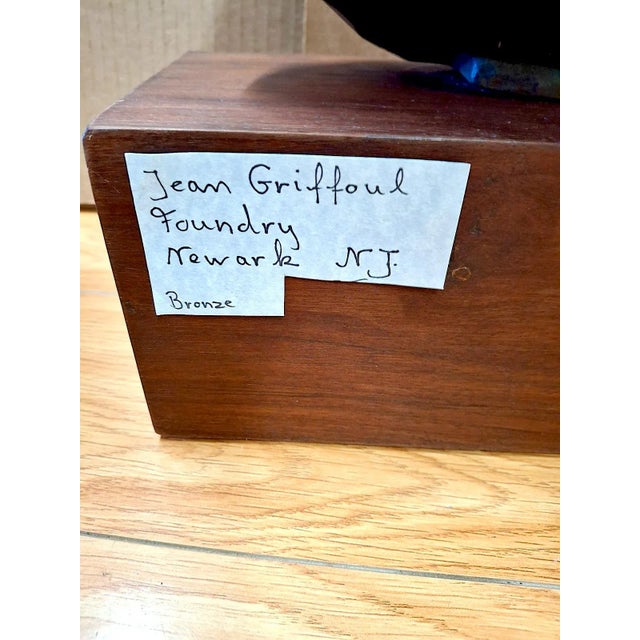 Jean Griffoul
Foundry
Newark NJ.
Bronze